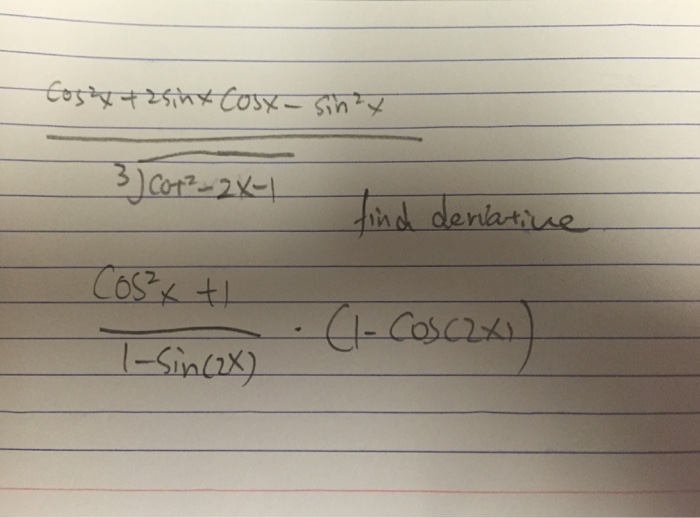 cos²x + 2sinx cosx - sin²x
3√cot² - 2x - 1
find derivative
cos²x + 1
1 - sin(2x)
· (1 - cos(2x))